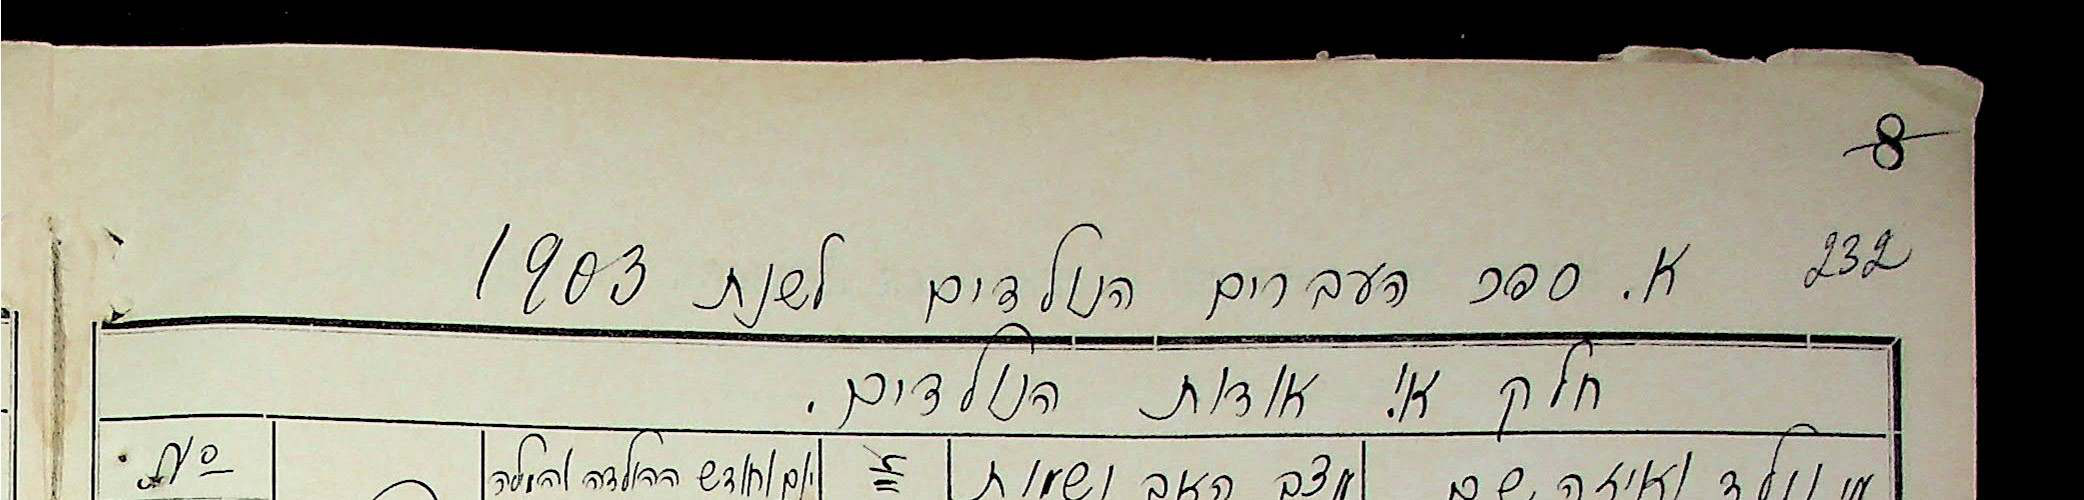 8
232
א. ספר העברים הנולדים לשנת 1903
חלק א׳ אודות הנולדים.
מי נולד ואיזה שם
מצב האב ושמות
יום וחודש ההולדה והמילה